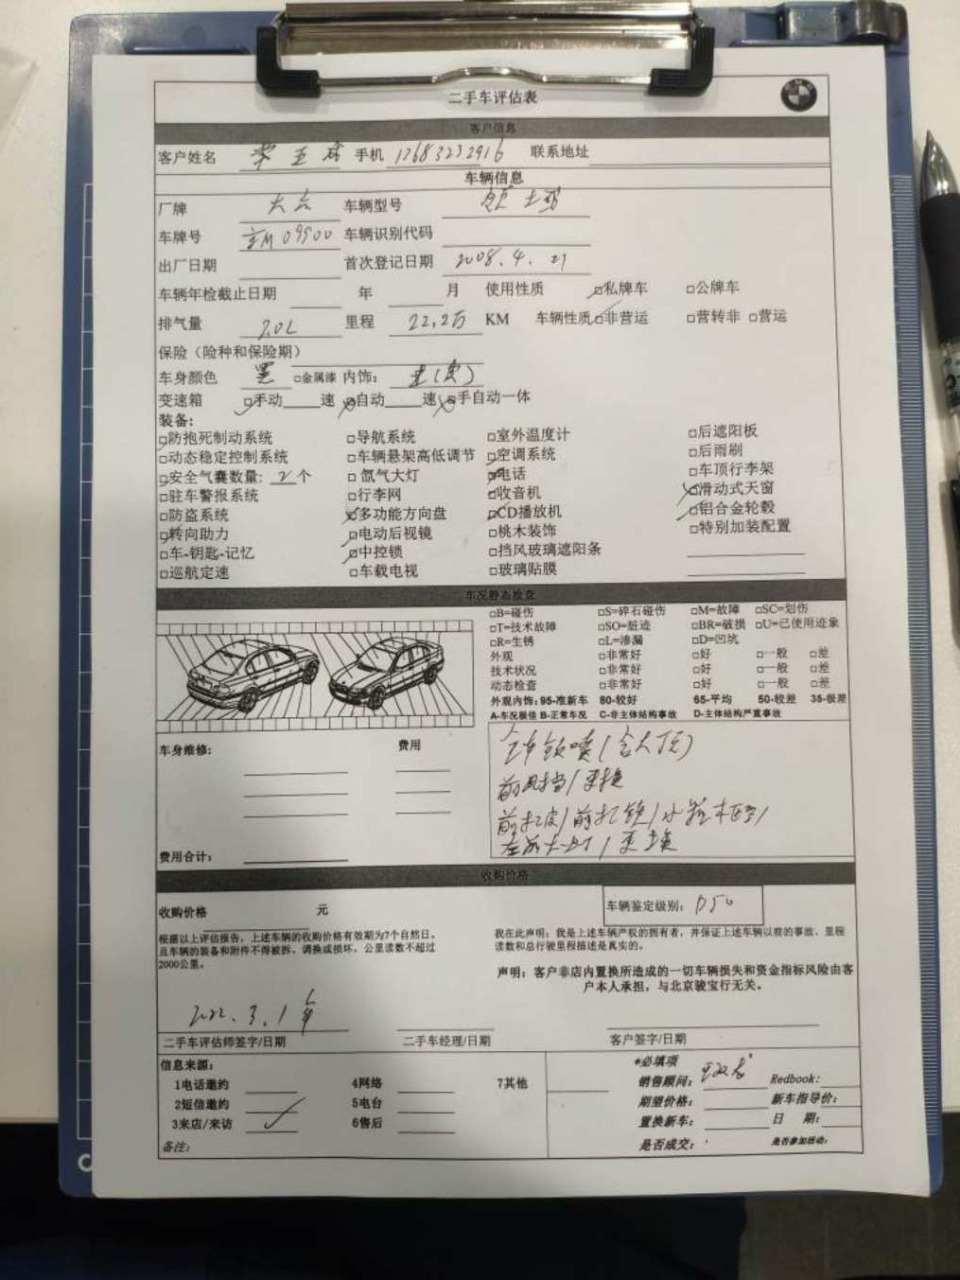 二手车评估表
客户信息
客户姓名 手机 联系地址
车辆信息
厂牌 大众 车辆型号 领驭
车牌号 车辆识别代码
出厂日期 首次登记日期 2008.4.21
车辆年检截止日期 年 月 使用性质 □私牌车 □公牌车
排气量 2.0L 里程 22.2万 KM 车辆性质 □非营运 □营转非 □营运
保险（险种和保险期）
车身颜色 黑 □金属漆 内饰：
变速箱 □手动 速 □自动 速 □手自动一体
装备：
□防抱死制动系统 □导航系统 □室外温度计 □后遮阳板
□动态稳定控制系统 □车辆悬架高低调节 □空调系统 □后雨刷
□安全气囊数量：2个 □氙气大灯 □电话 □车顶行李架
□驻车警报系统 □行李网 □收音机 □滑动式天窗
□防盗系统 □多功能方向盘 □CD播放机 □铝合金轮毂
□转向助力 □电动后视镜 □桃木装饰 □特别加装配置
□车-钥匙-记忆 □中控锁 □挡风玻璃遮阳条
□巡航定速 □车载电视 □玻璃贴膜
车况静态检查
□B=碰伤 □S=碎石碰伤 □M=故障 □SC=划伤
□T=技术故障 □SO=脏迹 □BR=破损 □U=已使用迹象
□R=生锈 □L=渗漏 □D=凹坑
外观 □非常好 □好 □一般 □差
技术状况 □非常好 □好 □一般 □差
动态检查 □非常好 □好 □一般 □差
外观内饰：95-准新车 80-较好 65-平均 50-较差 35-极差
A-车况极佳 B-正常车况 C-非主体结构事故 D-主体结构严重事故
车身维修： 费用
全车钣喷(含大顶)
前风挡/更换
前杠皮/前杠铁/水箱框架/
左前大灯/更换
费用合计：
收购价格
收购价格 元
车辆鉴定级别：D50
根据以上评估报告，上述车辆的收购价格有效期为7个自然日。
且车辆的装备和附件不得被拆、调换或损坏，公里读数不超过
2000公里。
我在此声明：我是上述车辆产权的拥有者，并保证上述车辆以前的事故、里程
读数和总行驶里程描述是真实的。
声明：客户非店内置换所造成的一切车辆损失和资金指标风险由客
户本人承担，与北京骏宝行无关。
2022.3.1
二手车评估师签字/日期 二手车经理/日期 客户签字/日期
信息来源：
1电话邀约 4网络 7其他
2短信邀约 5电台
3来店/来访 6售后
备注：
*必填项
销售顾问： Redbook:
期望价格： 新车指导价：
置换新车： 日 期：
是否成交： 是否参加活动：